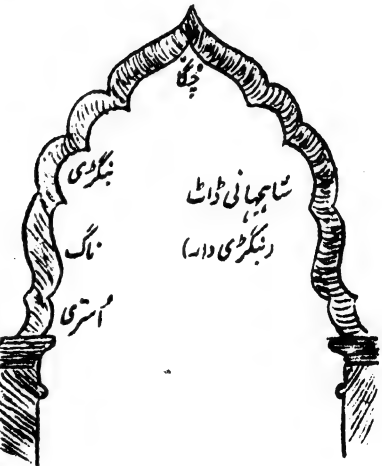 چُگّا
بنگڑی
شاہجہانی ڈاٹ
(بنگڑی دار)
ناگ
اُستری